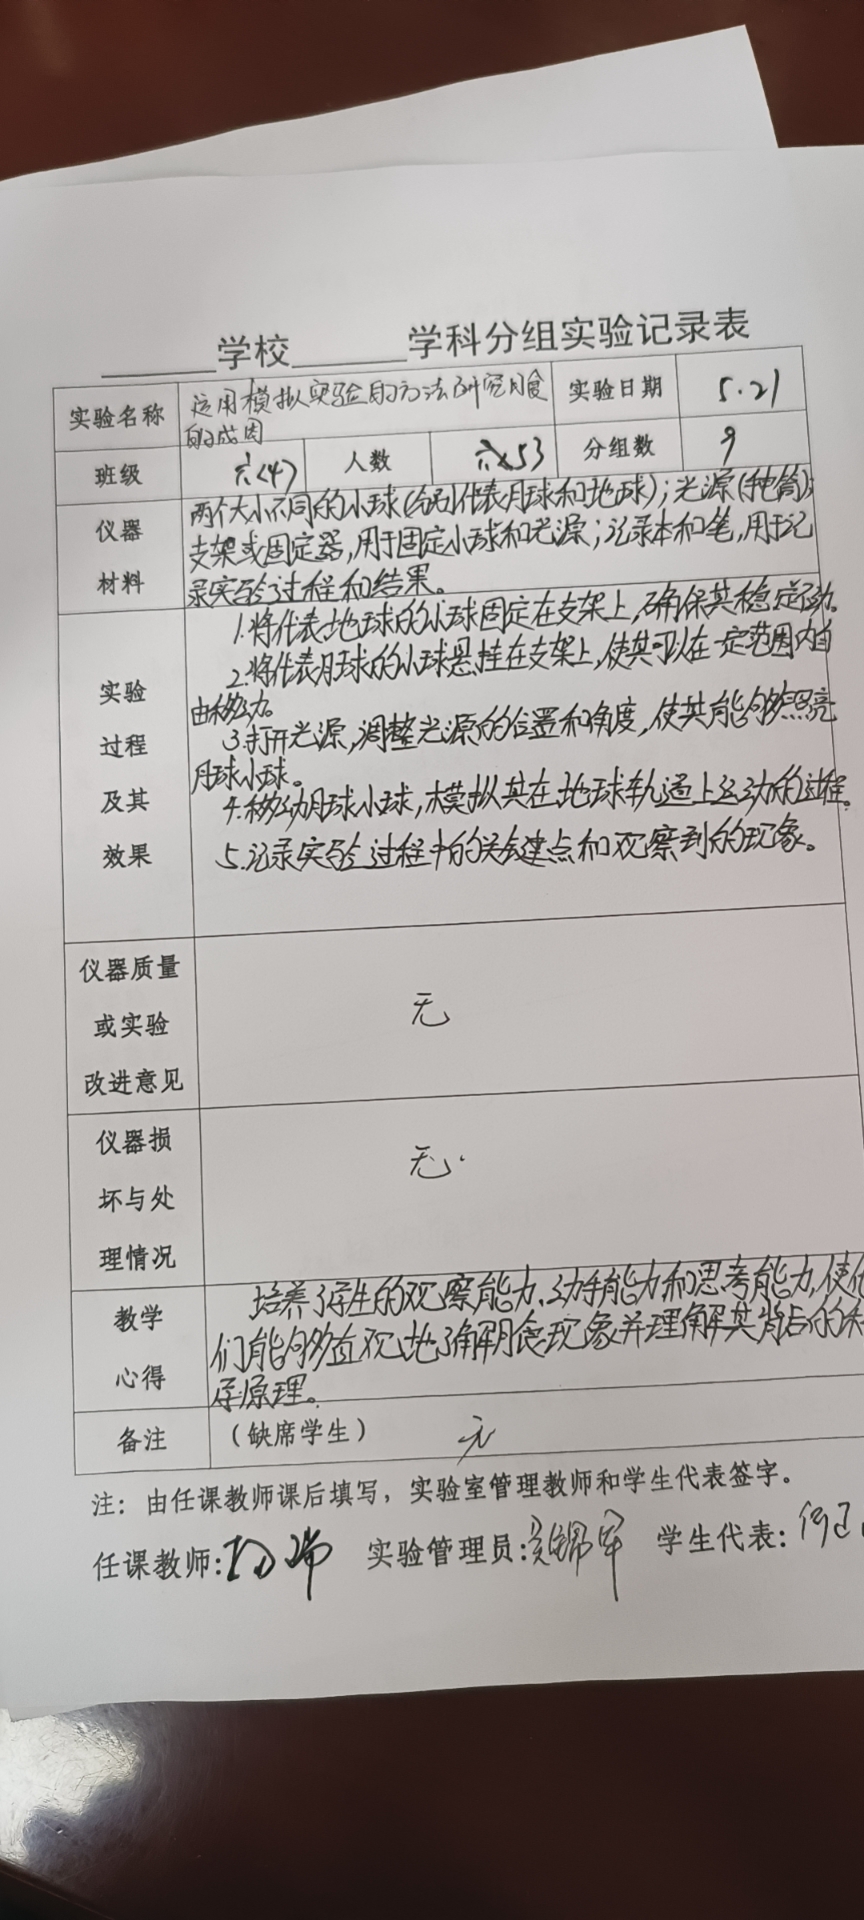 ______学校______学科分组实验记录表
实验名称 运用模拟实验的方法研究月食
的成因
实验日期 5.21
班级 六(4) 人数 53 分组数 9
仪器
材料
两个大小不同的小球(分别代表月球和地球);光源(手电筒);
支架或固定器,用于固定小球和光源;记录本和笔,用于记
录实验过程和结果。
实验
过程
及其
效果
1.将代表地球的小球固定在支架上,确保其稳定不动。
2.将代表月球的小球悬挂在支架上,使其可以在一定范围内自
由移动。
3.打开光源,调整光源的位置和角度,使其能够照亮
月球小球。
4.移动月球小球,模拟其在地球轨道上运动的过程。
5.记录实验过程中的关键点和观察到的现象。
仪器质量
或实验
改进意见
无
仪器损
坏与处
理情况
无.
教学
心得
培养了学生的观察能力、动手能力和思考能力,使他
们能够直观地了解月食现象并理解其背后的科
学原理。
备注 (缺席学生) 无
注:由任课教师课后填写,实验室管理教师和学生代表签字。
任课教师: 实验管理员: 学生代表: